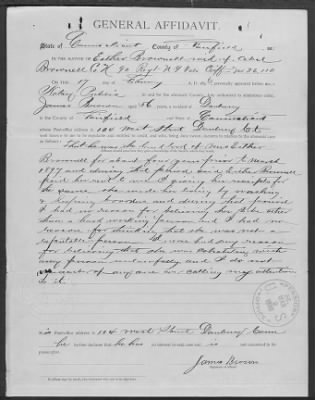 GENERAL AFFIDAVIT.
State of Connecticut County of Fairfield
IN THE MATTER OF Esther Brownell wid. of
Brownell 90 Regt N Y Vol
ON THIS 17 day of A. D.
Notary Public
James Brown aged 56 years Danbury
in the County of Fairfield Connecticut
whose post-office address is 104 West Street Danbury Ct
that he was the land lord of Mrs Esther
Brownell for about four years prior to March
1897 and during that period said Esther Brownell
paid the rent to me I giving her receipts for
the same she made her living by washing
& keeping boarders and during that period
I had no reason for believing her to be other
than a hard working person and I had no
reason for thinking that she was not a
respectable person. I never had any reason
for believing that she was cohabiting with
any person unlawfully and I do not
know of any one ever calling my attention
to it.
his Post-office address is 104 West Street Danbury Conn
he further declares that he has no interest in said case and is not concerned in its
prosecution.
James Brown